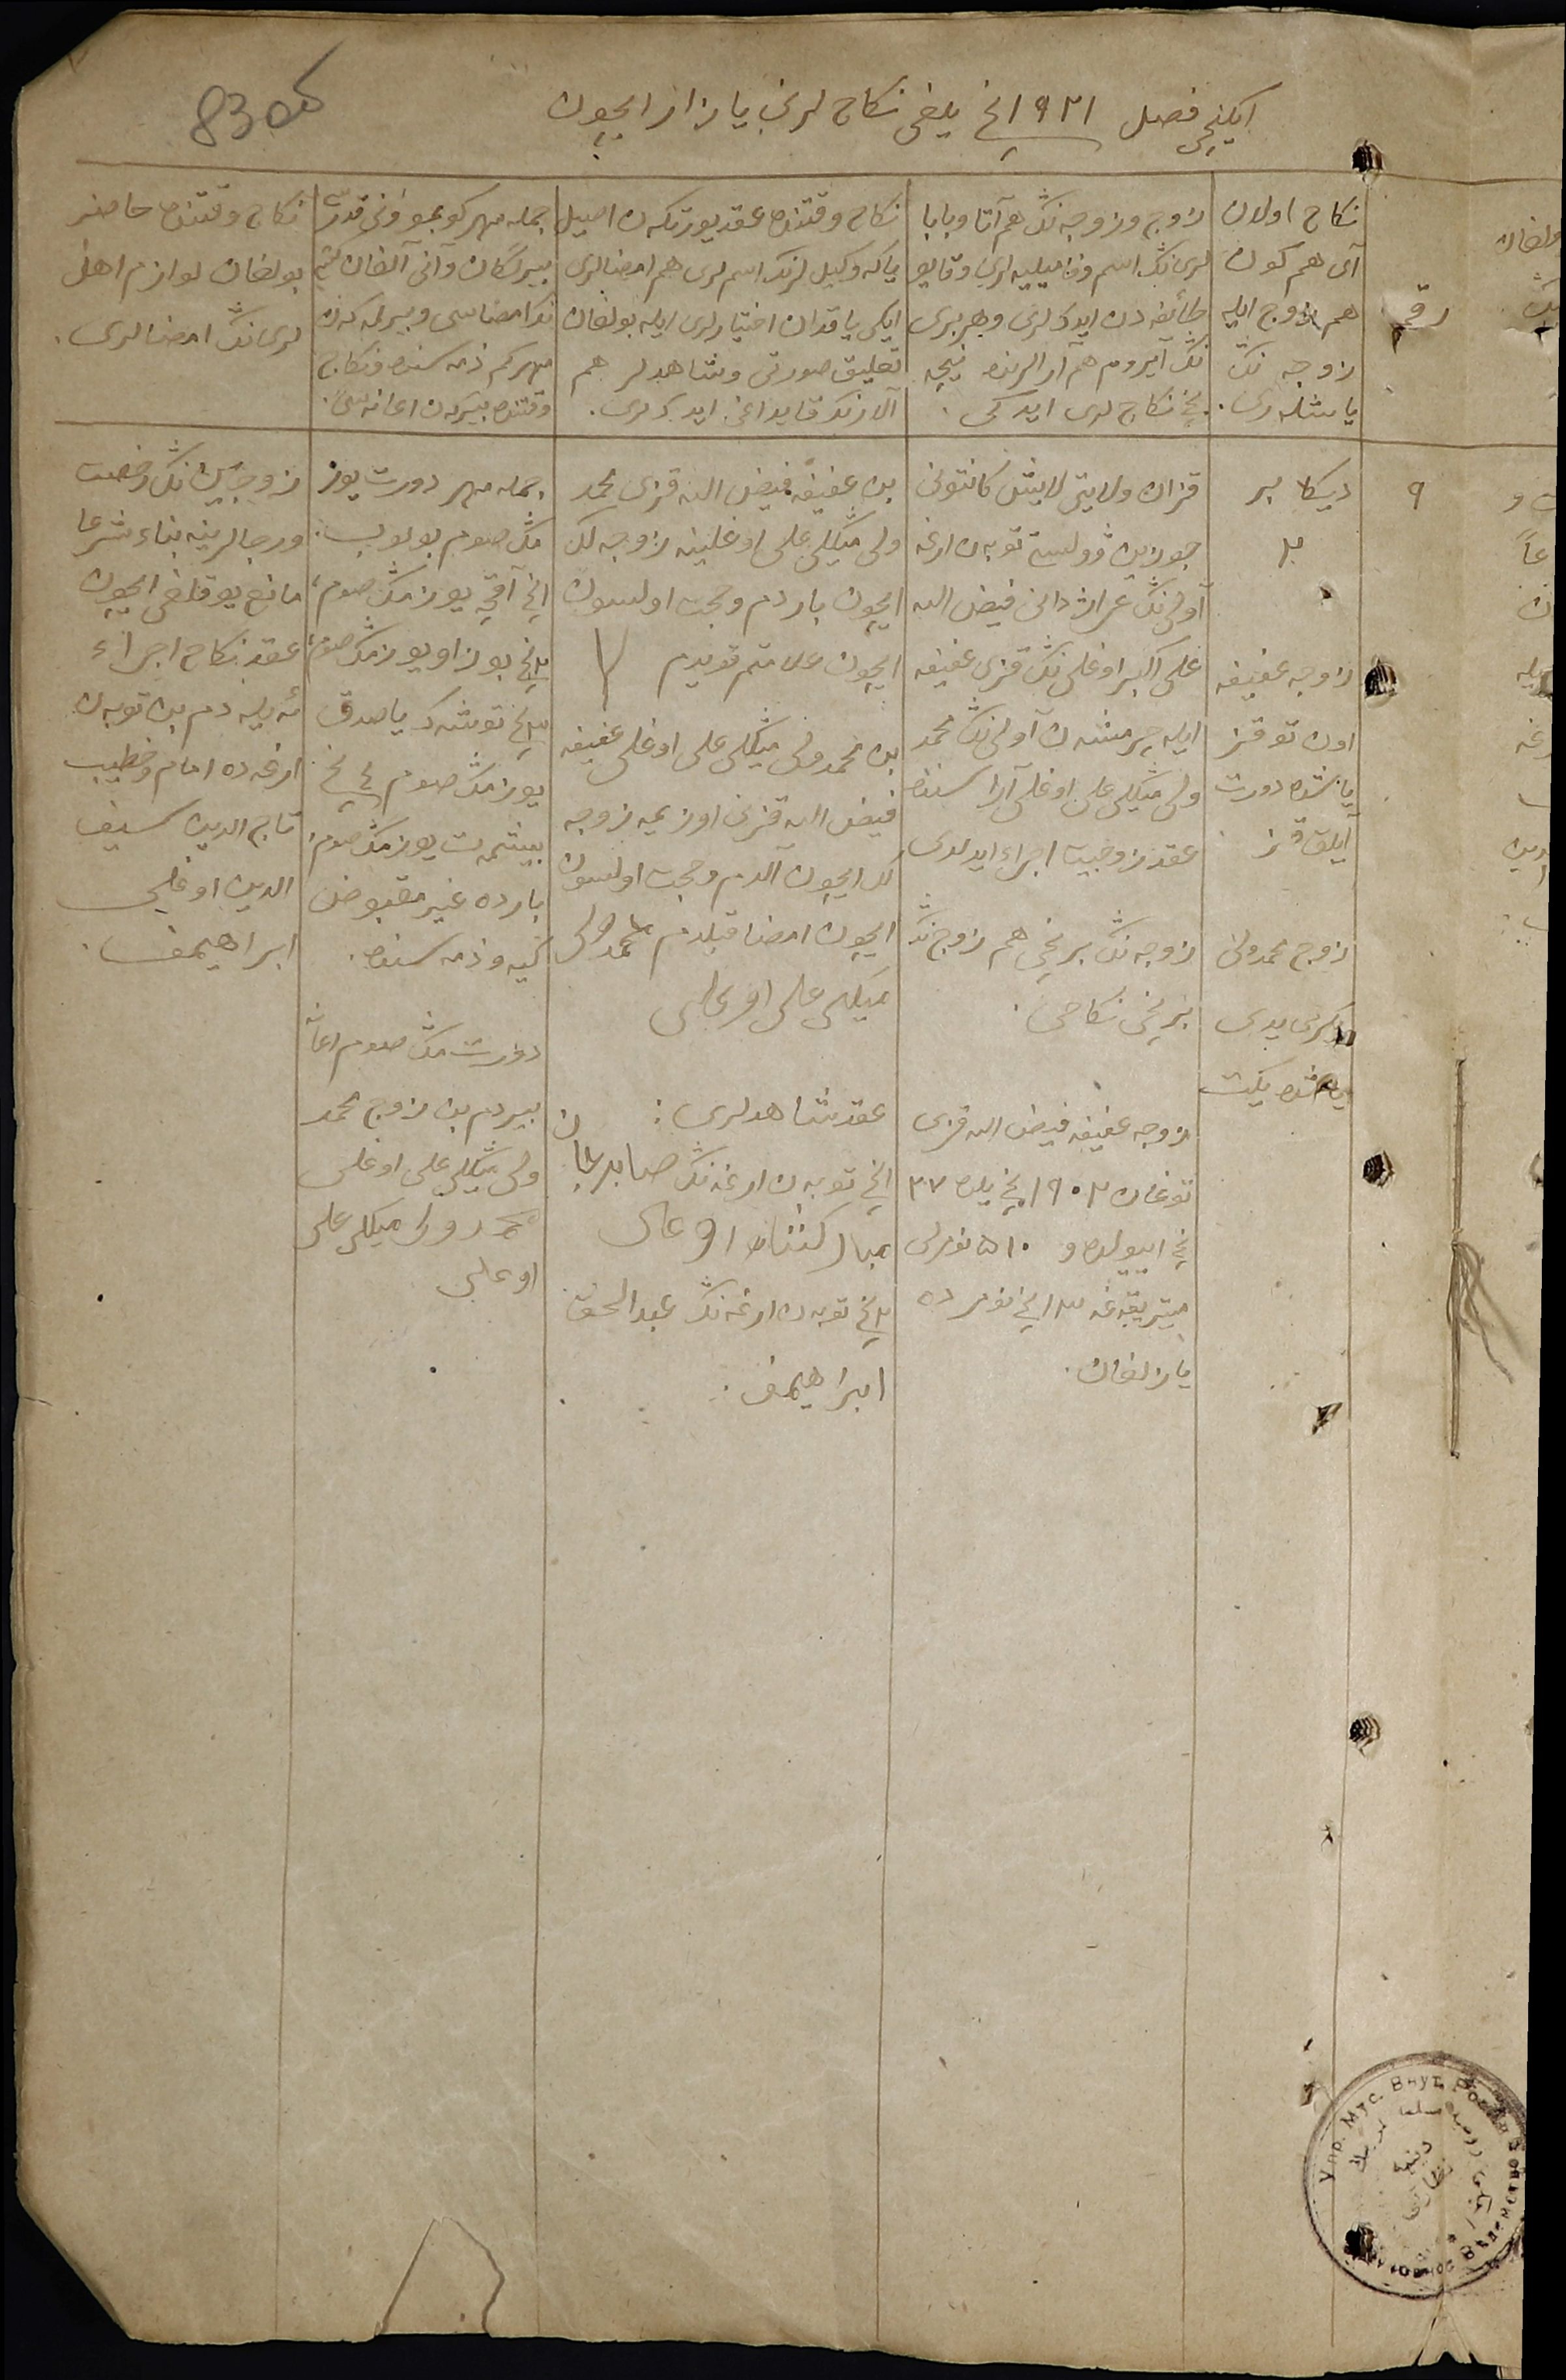 ایکنچی فصل ۱۹۲۱ نچی یلغی نکاح لرنی یازار ایچون
830
رقم
نکاح اولان
آی هم کون
هم زوج ایله
زوجه نڭ
یاشلەری.
زوج و زوجه نڭ هم آتا و بابا
لری نڭ اسم و فامیلیه لری و قایو
طائفه دن ایدکلری و هر بری
نڭ آیروم هم آرالرنده نیچه
نچی نکاح لری ایدکی.
نکاح وقتنده عقد یورتکەن اصیل
یاکه وکیل لرنڭ اسم لری هم امضالری
ایکی یاقدان اختیارلری ایله بولغان
تعلیق صورتی و شاهدلر هم
آلارنڭ قایداغی ایدکلری.
جمله مهر کوبمو و نی قدر
بیرلگان و آنی آلغان کشی
نڭ امضاسی و بیرلمەکەن
مهر کم ذمەسنده و نکاح
وقتنده بیرکەن اعانەسی.
نکاح وقتنده حاضر
بولغان لوازم اهل
لری نڭ امضالری.
۹
دیکابر
۲
زوجه عفیفه
اون توقز
یاشنده دورت
ایلق قز.
زوج محمدولی
یکرمی یدی
یاشنده یکت
قزان ولایتی لایش کانتونی
چورین وولست توبەن ارغه
آولی نڭ عمران دانی فیض الله
علی اکبر اوغلی نڭ قزی عفیفه
ایله چرمشەن آولی نڭ محمد
ولی میڭلی علی اوغلی آراسنده
عقد زوجیت اجراء ایدلدی
زوجه نڭ برنچی هم زوج نڭ
برنچی نکاحی.
زوجه عفیفه فیض الله قزی
توغان ۱۹۰۲ نچی یلده ۲۷
نچی اییولده و ۵۱۰ نومرلی
میتریقەغه ۱۲ نچی نومرده
یازلغان.
بن عفیفه فیض الله قزی محمد
ولی میڭلی علی اوغلینه زوجه لک
ایچون باردم و حجت اولسون
ایچون علامتم قویدم
بن محمدولی میڭلی علی اوغلی عفیفه
فیض الله قزین اوزیمه زوجه
لک ایچون آلدم و حجت اولسون
ایچون امضا قیلدم محمدولی
میکلی علی اوغلی
عقد شاهدلری:
۱نچی توبەن ارغەنڭ صابرجان
مبارکشاه اوغلی
۲نچی توبەن ارغەنڭ عبدالحق
ابراهیمف.
جمله مهر دورت یوز
مڭ صوم بولوب:
۱نچی آقچه یوز مڭ صوم،
۲نچی بوزاو یوز مڭ صوم،
۳نچی توشەک یاصدق
یوز مڭ صوم ۴نچی
بیشمەت یوز مڭ صوم.
بارده غیر مقبوض
کیەو ذمەسنده.
دورت مڭ صوم اعانه
بیردم بن زوج محمد
ولی میڭلی علی اوغلی
محمدولی میکلی علی
اوغلی
زوجین نڭ رخصت
و رجالرینه بناء شرعا
مانع یوقلغی ایچون
عقد نکاح اجراء
ئەیلەدم بن توبەن
ارغەده امام و خطیب
تاج الدین سیف
الدین اوغلی
ابراهیمف.
Упр. Мус. Внут.